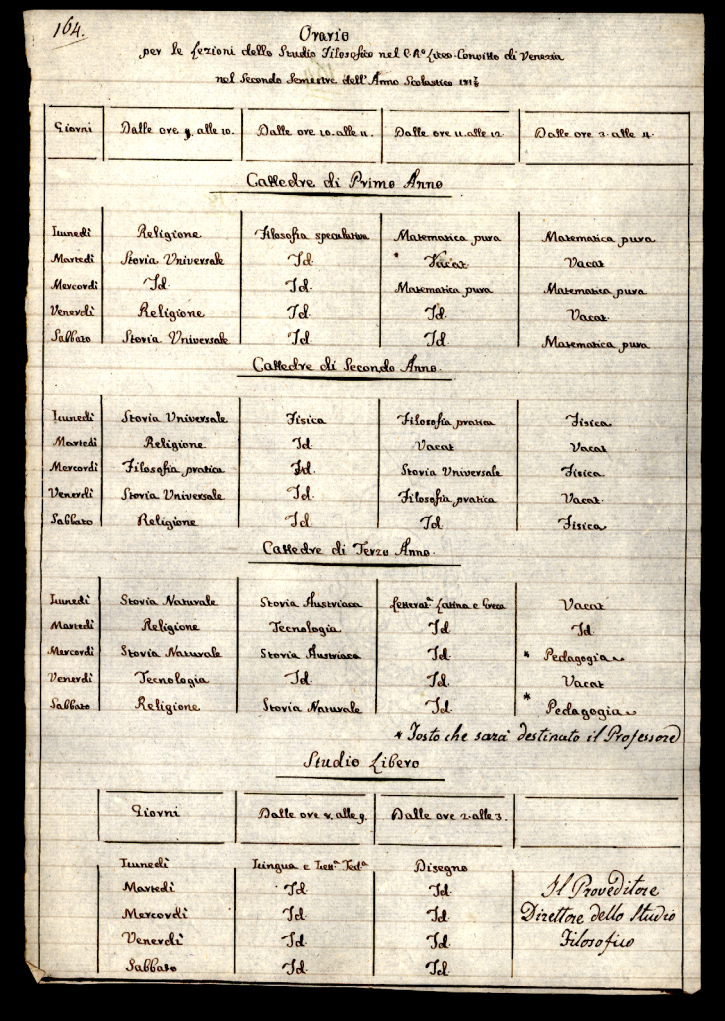 164.
Orario
per le Lezioni dello Studio Filosofico nel C. Rº Liceo-Convitto di Venezia
nel Secondo Semestre dell'Anno Scolastico
Giorni Dalle ore 9. alle 10. Dalle ore 10. alle 11. Dalle ore 11. alle 12. Dalle ore 3. alle 4.
Cattedre di Primo Anno
Lunedì Religione Filosofia speculativa Matematica pura Matematica pura
Martedì Storia Universale Id. Vacat Vacat
Mercordì Id. Id. Matematica pura Matematica pura
Venerdì Religione Id. Id. Vacat.
Sabbato Storia Universale Id. Id. Matematica pura
Cattedre di Secondo Anno.
Lunedì Storia Universale Fisica Filosofia pratica Fisica
Martedì Religione Id. Vacat Vacat
Mercordì Filosofia pratica Id. Storia Universale Fisica
Venerdì Storia Universale Id. Filosofia pratica Vacat.
Sabbato Religione Id. Id. Fisica
Cattedre di Terzo Anno.
Lunedì Storia Naturale Storia Austriaca Letterat.ª Latina e Greca Vacat
Martedì Religione Tecnologia Id. Id.
Mercordì Storia Naturale Storia Austriaca Id. * Pedagogia
Venerdì Tecnologia Id. Id. Vacat
Sabbato Religione Storia Naturale Id. * Pedagogia
* Tosto che sarà destinato il Professore
Studio Libero
Giorni Dalle ore 8. alle 9. Dalle ore 2. alle 3.
Lunedì Lingua e Lett.ª Ted.ª Disegno
Martedì Id. Id.
Mercordì Id. Id.
Venerdì Id. Id.
Sabbato Id. Id.
Il Proveditore
Direttore dello Studio
Filosofico